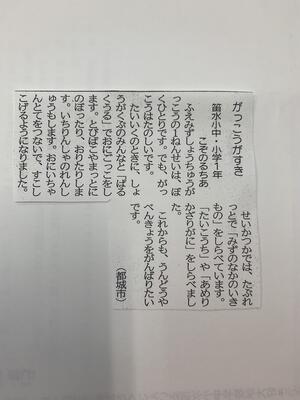 がっこうがすき
笛水小中・小学1年
こぞのるちあ
ふえみずしょうちゅうが
っこうの1ねんせいは、ぼ
くひとりです。でも、がっ
こうはたのしいです。
たいいくのときに、しょ
うがくぶのみんなと「ぱる
くうる」でおにごっこをし
ます。とびばこやまっとに
のぼったり、おりたりしま
す。いちりんしゃのれんし
ゅうもします。おにいちゃ
んとてをつないで、すこし
こげるようになりました。
せいかつかでは、たぶれ
っとで「みずのなかのいき
もの」をしらべています。
「たいこうち」や「あめり
かざりがに」をしらべまし
た。
これからも、うんどうや
べんきょうをがんばりたい
です。
（都城市）